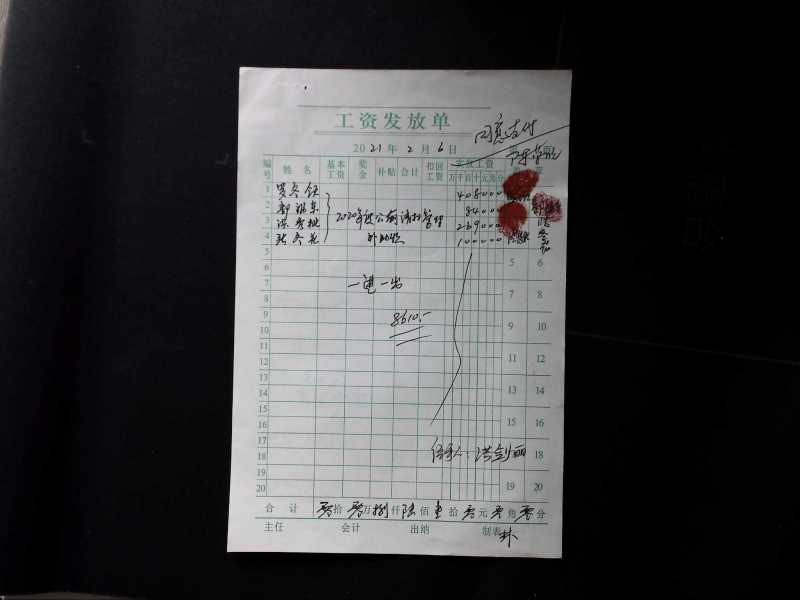 工资发放单
同意支付
2021年2月6日
编号 姓名 基本工资 奖金 补贴 合计 扣回工资 实发工资
万千百十元角分
1 408000
2 84000
3 2020年度公厕清扫管理 269000
4 张冬花 补助款 100000
5 5 6
6
7 一进一出 7 8
8
9 8610.- 9 10
10
11 11 12
12
13 13 14
14
15 15 16
16
17 经手人:洪剑丽 18
18
19 19 20
20
合计 零拾零万捌仟陆佰壹拾零元零角零分
主任 会计 出纳 制表 林